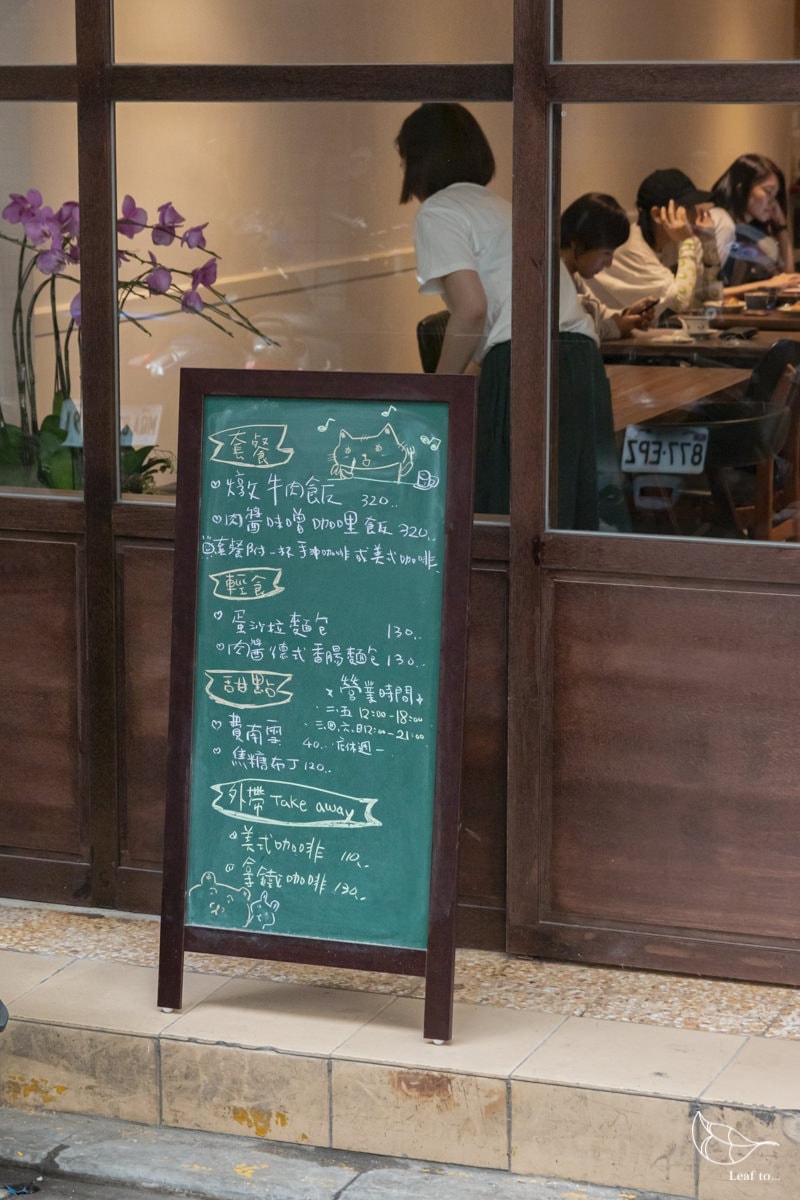 套餐
燉牛肉飯 320..
肉醬味噌咖哩飯 320..
套餐附一杯手沖咖啡或美式咖啡
輕食
蛋沙拉麵包 130..
肉醬德式香腸麵包 130..
甜點
費南雪 40..
焦糖布丁 120..
營業時間
二.五 12:00-18:00
三.四.六.日 12:00-21:00
店休週一
外帶 Take away
美式咖啡 110..
拿鐵咖啡 130..
877·EPZ
Leaf to...